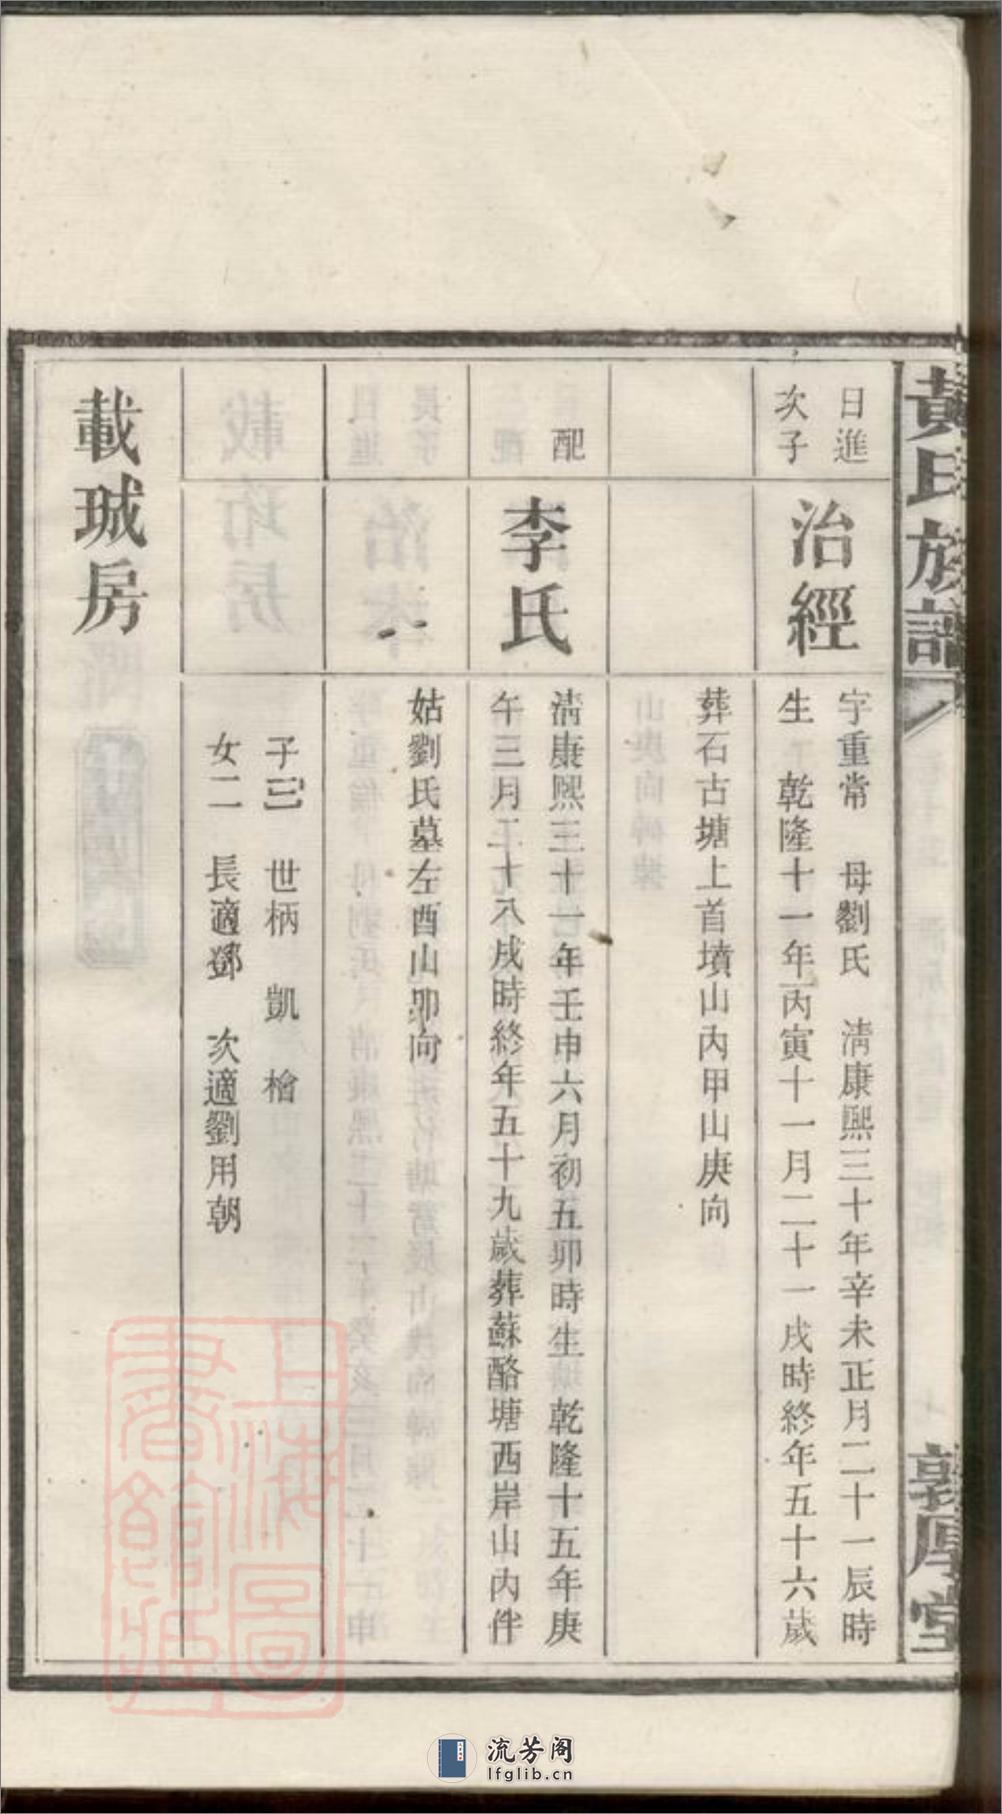 黃氏族譜
敦厚堂
日進
次子
治經
字重常　母劉氏　清康熙三十年辛未正月二十一辰時
生　乾隆十一年丙寅十一月二十一戌時終年五十六歲
葬石古塘上首墳山內甲山庚向
配
李氏
清康熙三十一年壬申六月初五卯時生　乾隆十五年庚
午三月二十八戌時終年五十九歲葬蘇酪塘西岸山內伴
姑劉氏墓左酉山卯向
子三　世柄　凱　檜
女二　長適鄧　次適劉用朝
載珹房
上海圖書館藏
流芳阁
lfglib.cn